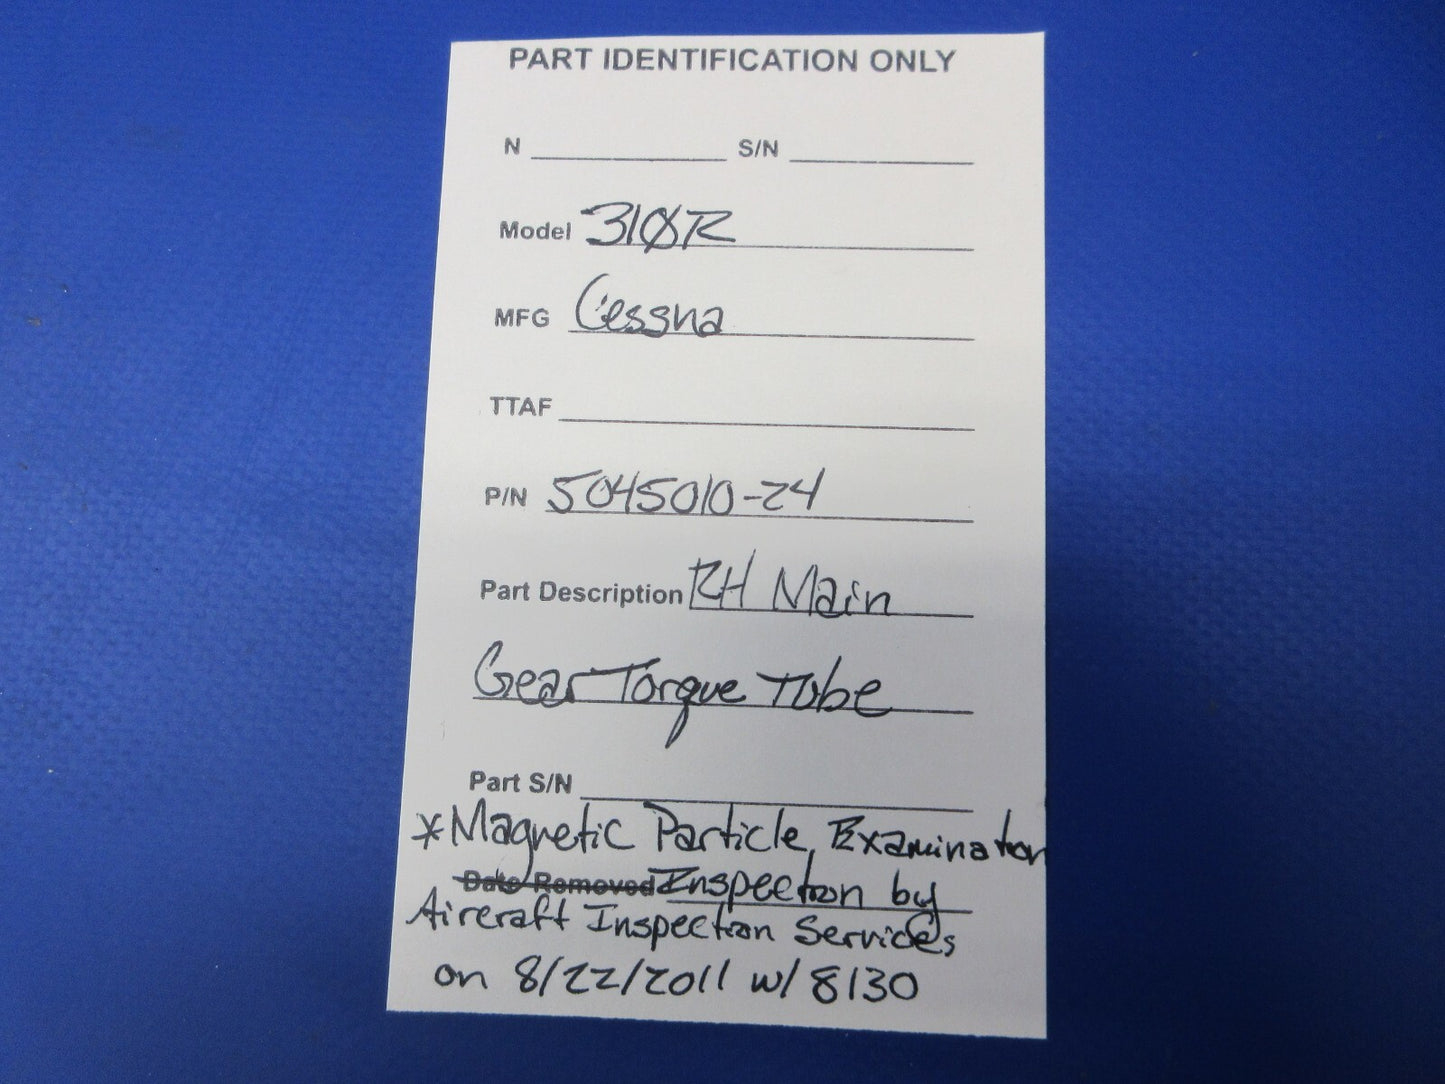 PART IDENTIFICATION ONLY
N S/N
Model 310R
MFG Cessna
TTAF
P/N 5045010-24
Part Description RH Main
Gear Torque Tube
Part S/N
*Magnetic Particle Examination
Date Removed Inspection by
Aircraft Inspection Services
on 8/22/2011 w/ 8130